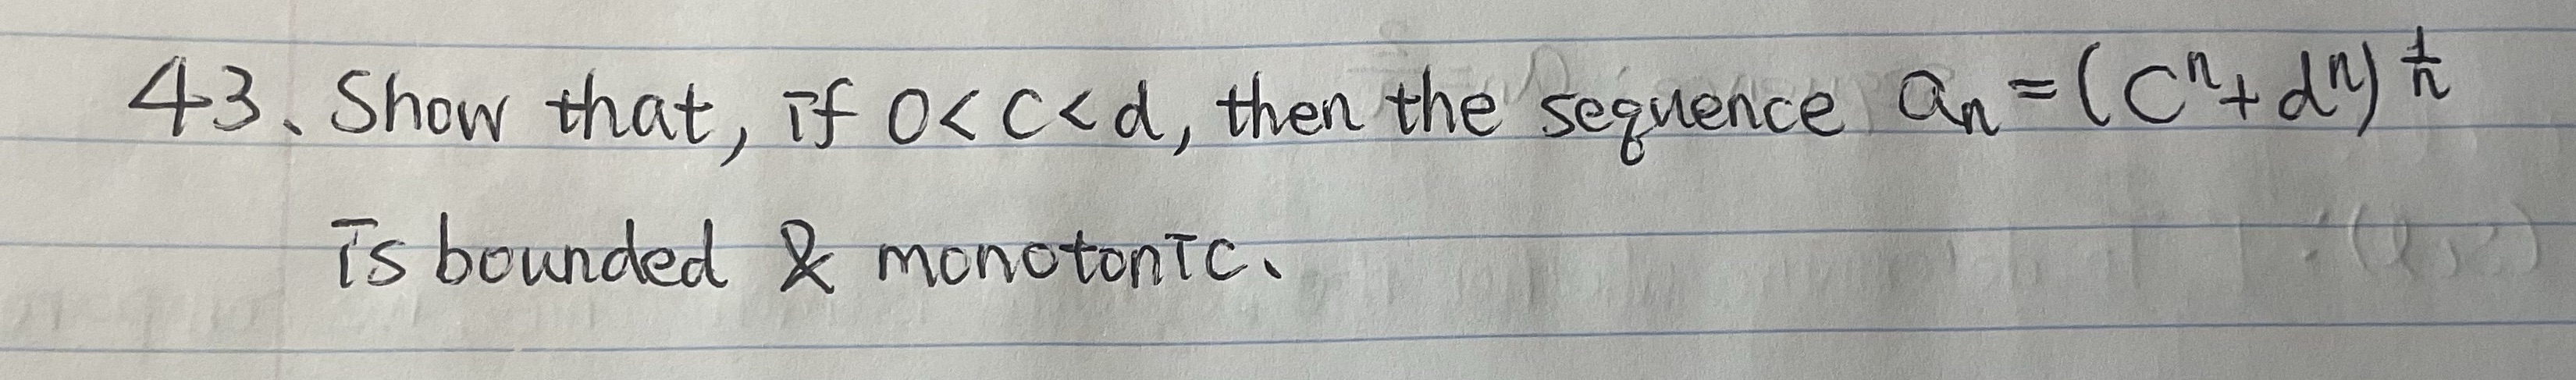 43. Show that, if 0<c<d, then the sequence aₙ = (cⁿ+dⁿ)^(1/n)
is bounded & monotonic.